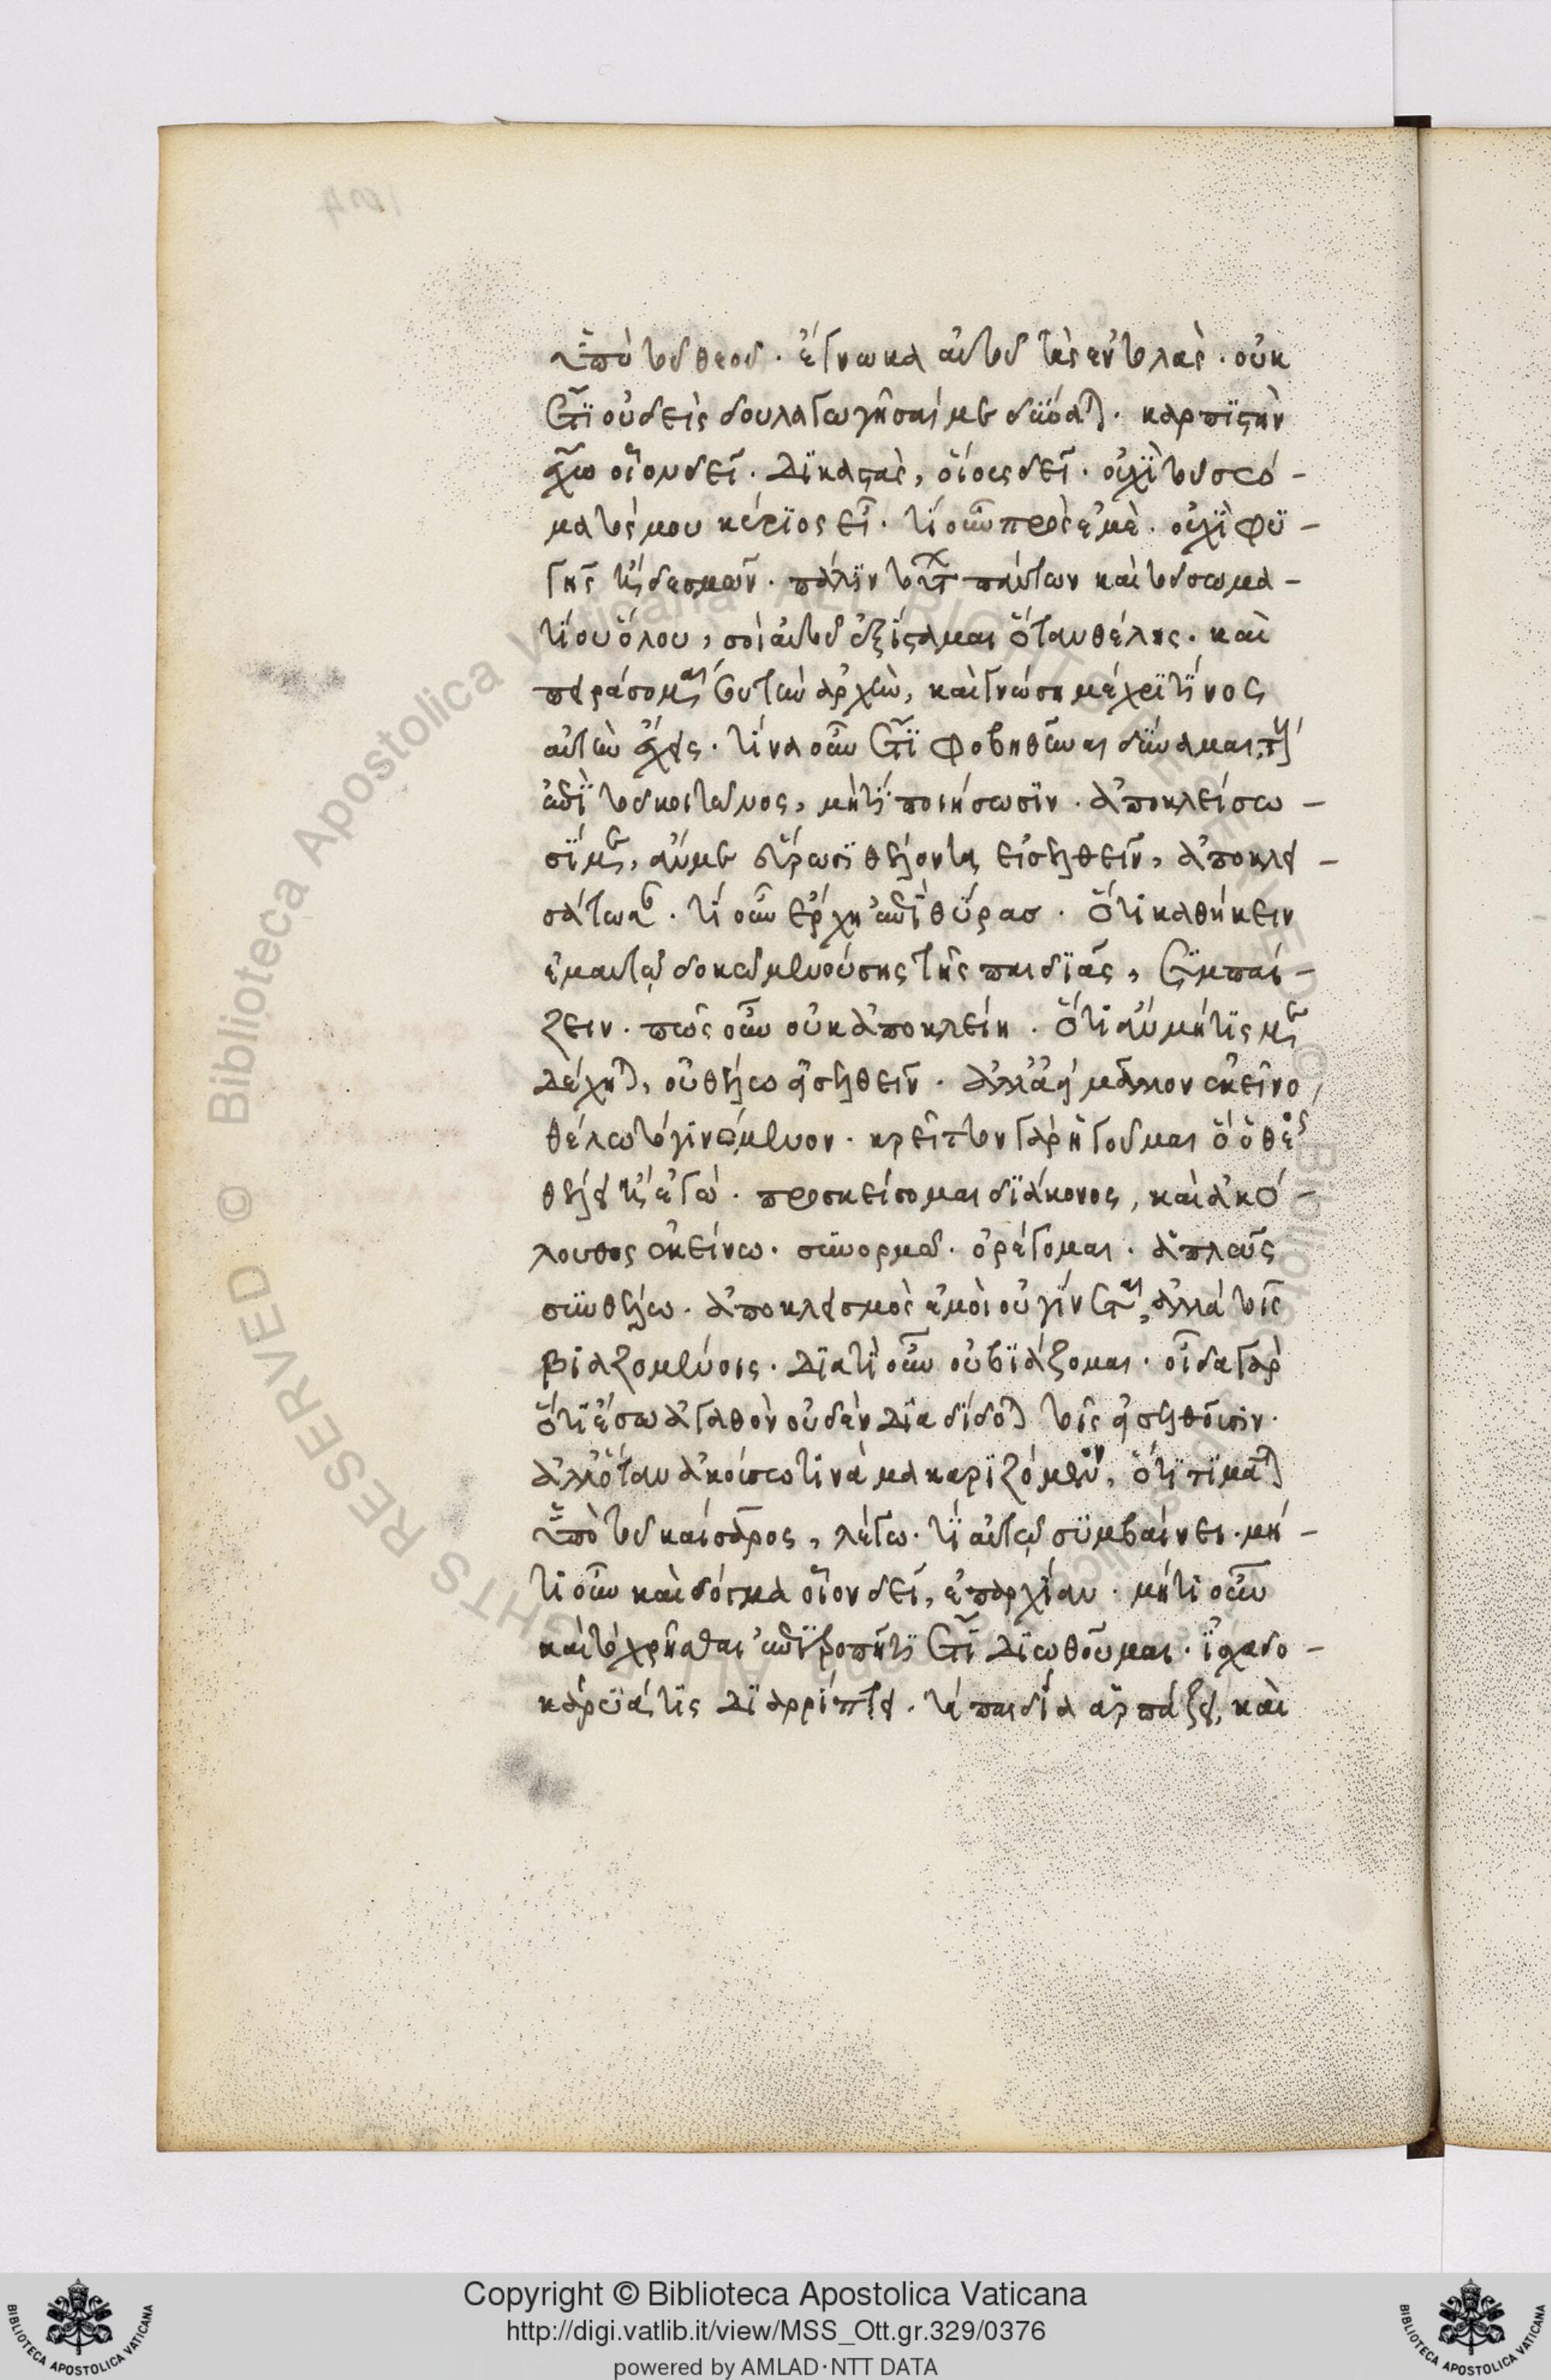 ὑπὸ τοῦ θεοῦ. ἔγνωκα αὐτοῦ τὰς ἐντολάς. οὐκ
ἔτι οὐδεὶς δουλαγωγῆσαί με δύναται. καρπιστὴν
ἔχω οἷον δεῖ. δικαστὰς, οἵους δεῖ. οὐχὶ τοῦ σώ-
ματός μου κύριος εἶ. τί οὖν πρὸς ἐμὲ. οὐχὶ φυ-
γῆς ἢ δεσμῶν. πάλιν τούτων πάντων καὶ τοῦ σωμα-
τίου ὅλου, σοὶ αὐτοῦ ἐξίσταμαι ὅταν θέλης. καὶ
πείρασαί μου τὴν ἀρχὴν, καὶ γνώση μέχρι τίνος
αὐτὴν ἔχεις. τίνα οὖν ἔτι φοβηθῆναι δύναμαι, τοὺς
ἐπὶ τοῦ κοιτῶνος, μὴ τί ποιήσωσιν. ἀποκλείσω-
σί με, ἄν με εὕρωσι θέλοντα εἰσελθεῖν, ἀποκλει-
σάτωσαν. τί οὖν ἔρχη ἐπὶ θύρας. ὅτι καθήκειν
ἐμαυτῷ δοκῶ μενούσης τῆς παιδιᾶς, συμπαί-
ζειν. πῶς οὖν οὐκ ἀποκλείη. ὅτι ἂν μή τίς με
δέχηται, οὐ θέλω εἰσελθεῖν. ἀλλ' ἀεὶ μᾶλλον ἐκεῖνο
θέλω τὸ γινόμενον. κρεῖττον γὰρ ἡγοῦμαι ὃ ὁ θεὸς
θέλει ἢ ἐγώ. προσκείσομαι διάκονος, καὶ ἀκό-
λουθος ἐκείνω. συνορμῶ. ὀρέγομαι. ἁπλῶς
συνθέλω. ἀποκλεισμὸς ἐμοὶ οὐ γίνεται, ἀλλὰ τοῖς
βιαζομένοις. διατί οὖν οὐ βιάζομαι. οἶδα γὰρ
ὅτι ἔσω ἀγαθὸν οὐδὲν διαδίδοται τοῖς εἰσελθοῦσιν.
ἀλλ' ὅταν ἀκούσω τινὰ μακαριζόμενον, ὅτι τιμᾶται
ὑπὸ τοῦ καίσαρος, λέγω. τί αὐτῷ συμβαίνει. μή-
τι οὖν καὶ δόγμα οἷον δεῖ, ἐπαρχίαν. μήτι οὖν
καὶ τὸ χρῆσθαι ἐπιτροπῆ τί ἔτι διωθοῦμαι. ἰσχαδο-
κάρυά τις διαρρίπτει. τὰ παιδία ἁρπάζει, καὶ
Copyright © Biblioteca Apostolica Vaticana
http://digi.vatlib.it/view/MSS_Ott.gr.329/0376
powered by AMLAD·NTT DATA